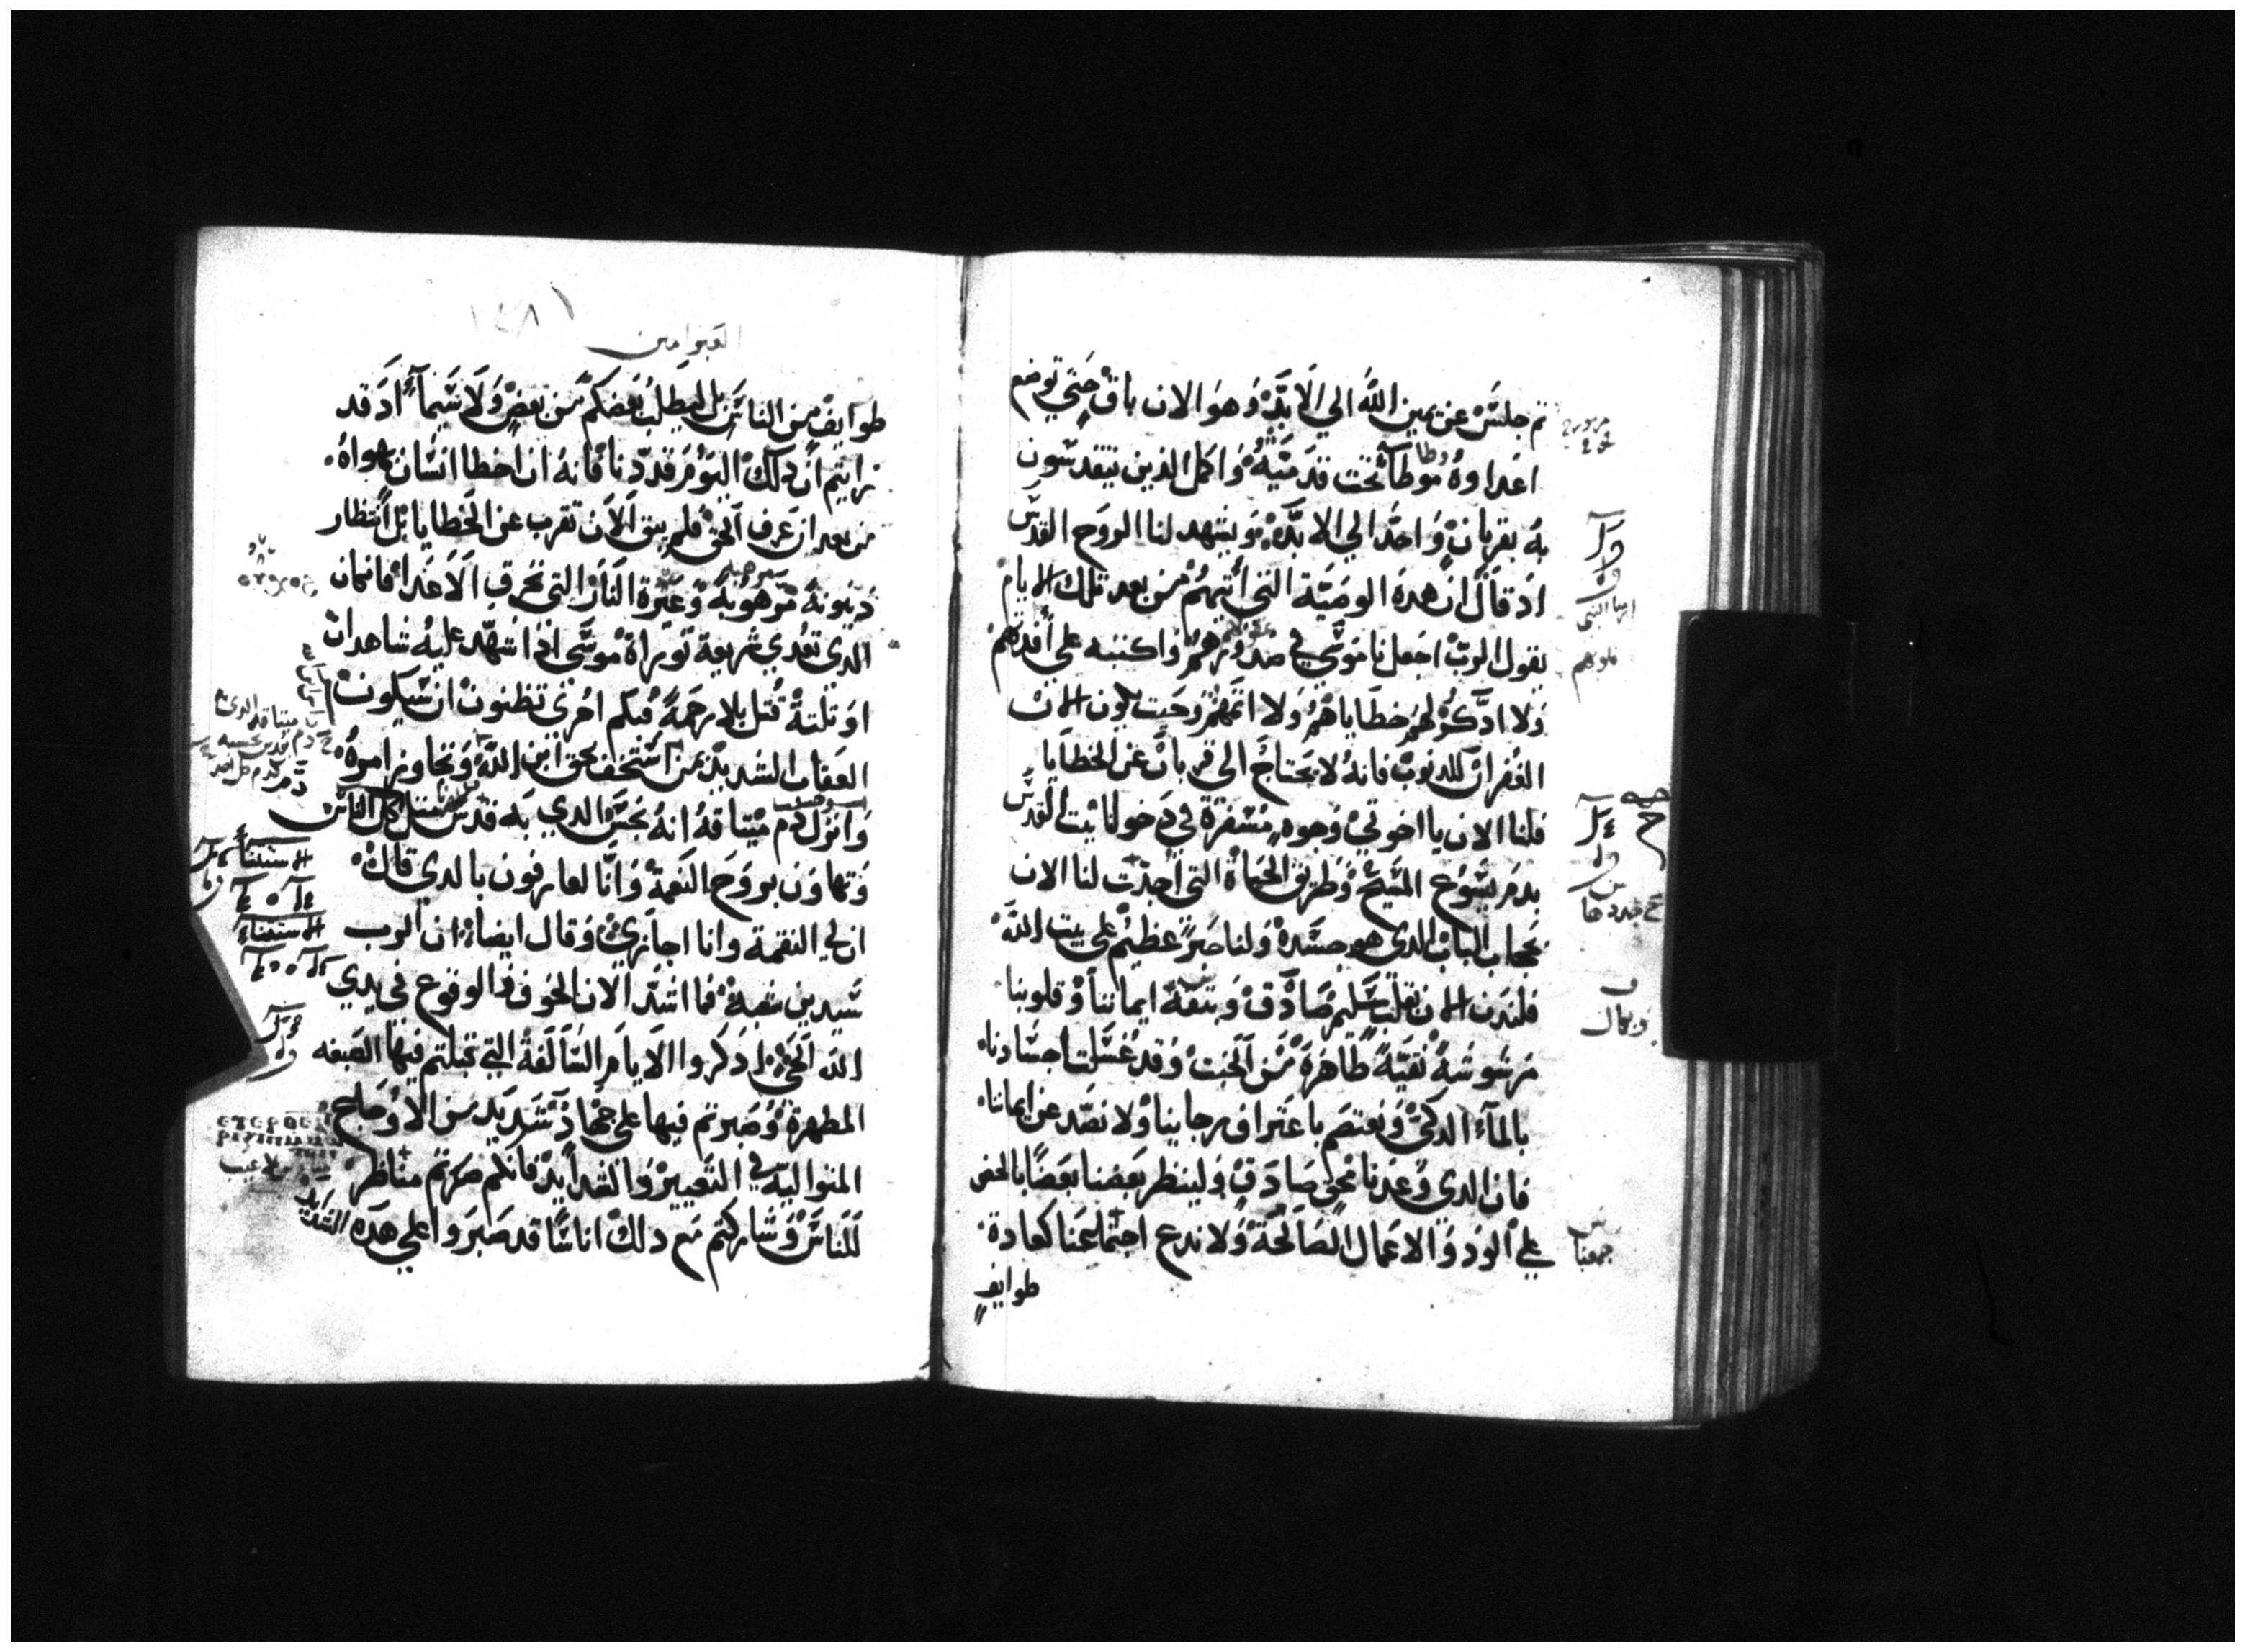 ثم جلس عن يمين الله الي الابد وهو الان باق حتي توضع
اعداوه موطآ تحت قدميه واكمل الذين يتقدسون
به بقربان واحد الي الابد ويشهد لنا الروح القدس
اذ قال ان هده الوصية التي أتيهم من بعد تلك الايام
يقول الرب اجعل ناموسي في صدورهم واكتبه علي أفدتهم
ولا ادكر لهم خطاياهم ولا اثمهم وحيت يكون الان
الغفران للدنوب فانه لا يحتاج الي قربان عن الخطايا
فلنا الان يا اخوتي وجوه مسفرة في دخولنا بيت القدس
بدم يشوع المسيح وطريق الحياة التي أجدت لنا الان
بحجاب الباب الدي هو جسده ولنا حبر عظيم علي بيت الله
فلندن الان بقلب سليم صادق وبتقة ايماننا وقلوبنا
مرشوشة نقية طاهرة من الخبت وقد غسلت اجسادنا
بالمآء الدكي ونعتصم باعتراف رجاينا ولا نصد عن ايماننا
فان الدي وعدنا محق صادق ولينظر بعضنا بعضا بالحض
علي الود والاعمال الصالحة ولا ندع اجتماعنا كعادة
طوايف
ارميا النبي
قلوبهم
جددها
وبكمال
جمعنا
العبرانيين
طوايف من الناس بل ليطلب بعضكم من بعض ولا سيمآ اد قد
رايتم ان دلك اليوم قد دنا فانه ان اخطا انسان بهواه
من بعد ان عرف الحق فلم يبق الان تقرب عن الخطايا بل أنتظار
دينونة مرهوبة وغيرة النار التي تحرق الاعدا فان كان
الدي تعدي شريعة توراة موسي اذا شهد عليه شاهدان
او تلتة قتل بلا رحمة فبكم احري تظنون ان سيكون
العقاب الشديد بمن استخف بحق ابن الله وتجاوز امره
وانزل دم ميتاقه انه نجس الدي به قدس كل الناس
وتهاون بروح النعمة وانا لعارفون بالدي قال
ان لي النقمة وانا اجازي وقال ايضا ان الرب
سيدين شعبه فما اشد الان الخوف فالوقوع في يدي
الله الحي ادكروا الايام السالفة التي قبلتم فيها الصبغه
المطهرة وصبرتم فيها علي جهاد شديد من الاوجاع
المتواليه في التعيير والشدايد فانكم صرتم مناظر
للناس وشاركتم مع دلك اناسا قد صبروا علي هده الشدايد
الاستتناء
الاستتناء